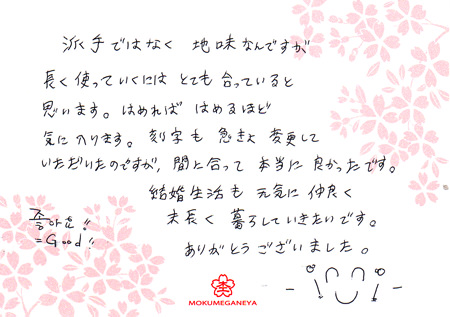 派手ではなく 地味なんですが
長く使っていくには とても合っていると
思います。はめれば はめるほど
気に入ります。刻字も 急きょ 変更して
いただいたのですが、間に合って 本当に 良かったです。
結婚生活も 元気に 仲良く
末長く 暮らしていきたいです。
ありがとうございました。
좋아요!!
=Good!!
MOKUMEGANEYA